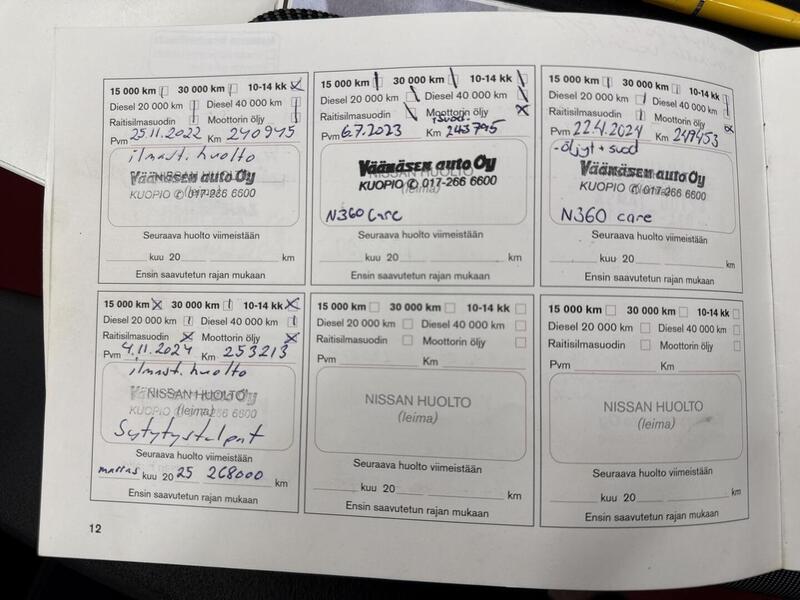 15 000 km 30 000 km 10-14 kk
Diesel 20 000 km Diesel 40 000 km
Raitisilmasuodin Moottorin öljy
Pvm 25.11.2022 Km 240945
ilmast. huolto
NISSAN HUOLTO
Väänäsen auto Oy
(leima)
KUOPIO ✆ 017-266 6600
Seuraava huolto viimeistään
kuu 20 km
Ensin saavutetun rajan mukaan
15 000 km 30 000 km 10-14 kk
Diesel 20 000 km Diesel 40 000 km
Raitisilmasuodin Moottorin öljy
+suod.
Pvm 6.7.2023 Km 243795
NISSAN HUOLTO
Väänäsen auto Oy
KUOPIO ✆ 017-266 6600
(leima)
N360 Care
Seuraava huolto viimeistään
kuu 20 km
Ensin saavutetun rajan mukaan
15 000 km 30 000 km 10-14 kk
Diesel 20 000 km Diesel 40 000 km
Raitisilmasuodin Moottorin öljy
Pvm 22.4.2024 Km 249453
-öljyt + suod
Väänäsen auto Oy
NISSAN HUOLTO
KUOPIO ✆ 017-266 6600
(leima)
N360 care
Seuraava huolto viimeistään
kuu 20 km
Ensin saavutetun rajan mukaan
15 000 km 30 000 km 10-14 kk
Diesel 20 000 km Diesel 40 000 km
Raitisilmasuodin Moottorin öljy
Pvm 4.11.2024 Km 253213
ilmast. huolto
Väänäsen auto Oy
NISSAN HUOLTO
KUOPIO ✆ 017-266 6600
(leima)
Sytytystulpat
Seuraava huolto viimeistään
marras kuu 20 25 268000 km
Ensin saavutetun rajan mukaan
15 000 km 30 000 km 10-14 kk
Diesel 20 000 km Diesel 40 000 km
Raitisilmasuodin Moottorin öljy
Pvm Km
NISSAN HUOLTO
(leima)
Seuraava huolto viimeistään
kuu 20 km
Ensin saavutetun rajan mukaan
15 000 km 30 000 km 10-14 kk
Diesel 20 000 km Diesel 40 000 km
Raitisilmasuodin Moottorin öljy
Pvm Km
NISSAN HUOLTO
(leima)
Seuraava huolto viimeistään
kuu 20 km
Ensin saavutetun rajan mukaan
12